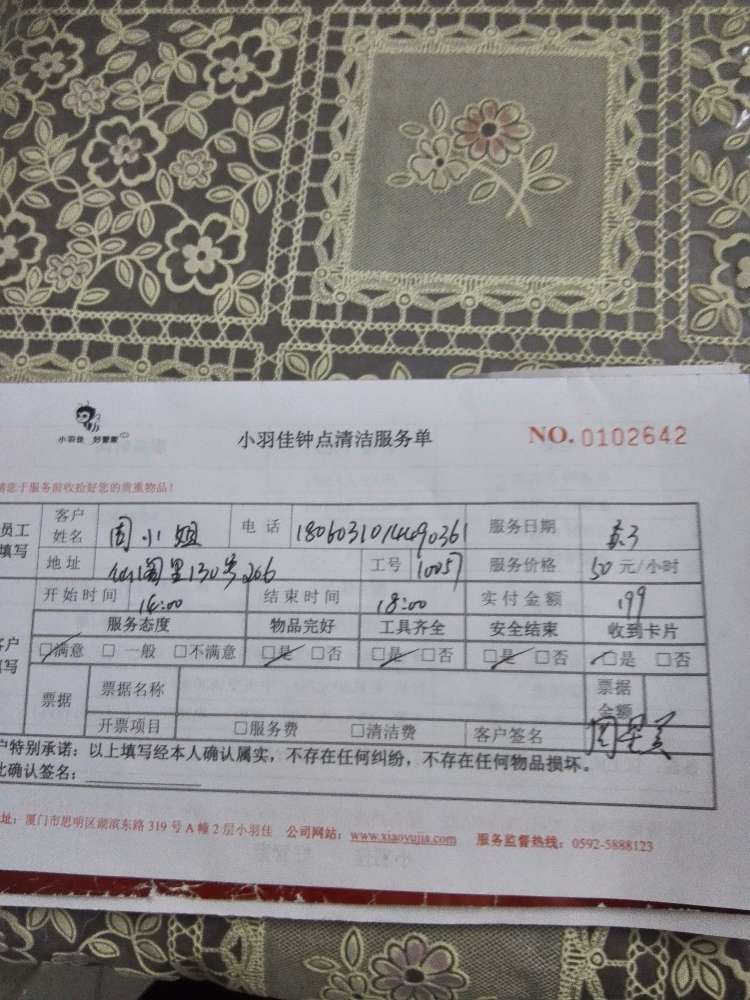 小羽佳 好管家
小羽佳钟点清洁服务单
NO. 0102642
请您于服务前收拾好您的贵重物品!
员工填写
客户姓名 周小姐 电话 服务日期
地址 仙阁里130号206 工号 10057 服务价格 50元/小时
开始时间 14:00 结束时间 18:00 实付金额 199
客户填写
服务态度 物品完好 工具齐全 安全结束 收到卡片
□满意 □一般 □不满意 □是 □否 □是 □否 □是 □否 □是 □否
票据 票据名称 票据金额
开票项目 □服务费 □清洁费 客户签名
户特别承诺:以上填写经本人确认属实,不存在任何纠纷,不存在任何物品损坏。
此确认签名:
址:厦门市思明区湖滨东路319号A幢2层小羽佳 公司网站:www.xiaoyujia.com 服务监督热线:0592-5888123